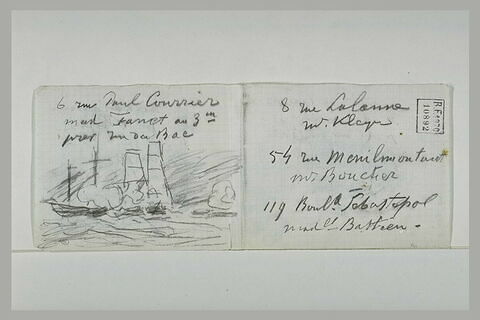 6 rue Paul Courrier
mad Fanet au 3me
près rue du Bac
8 rue Lalanne
mr Kleyr
54 rue Menilmontant
mr Boucher
119 Boulvd Sébastopol
madlle Battien
R.F.
10892